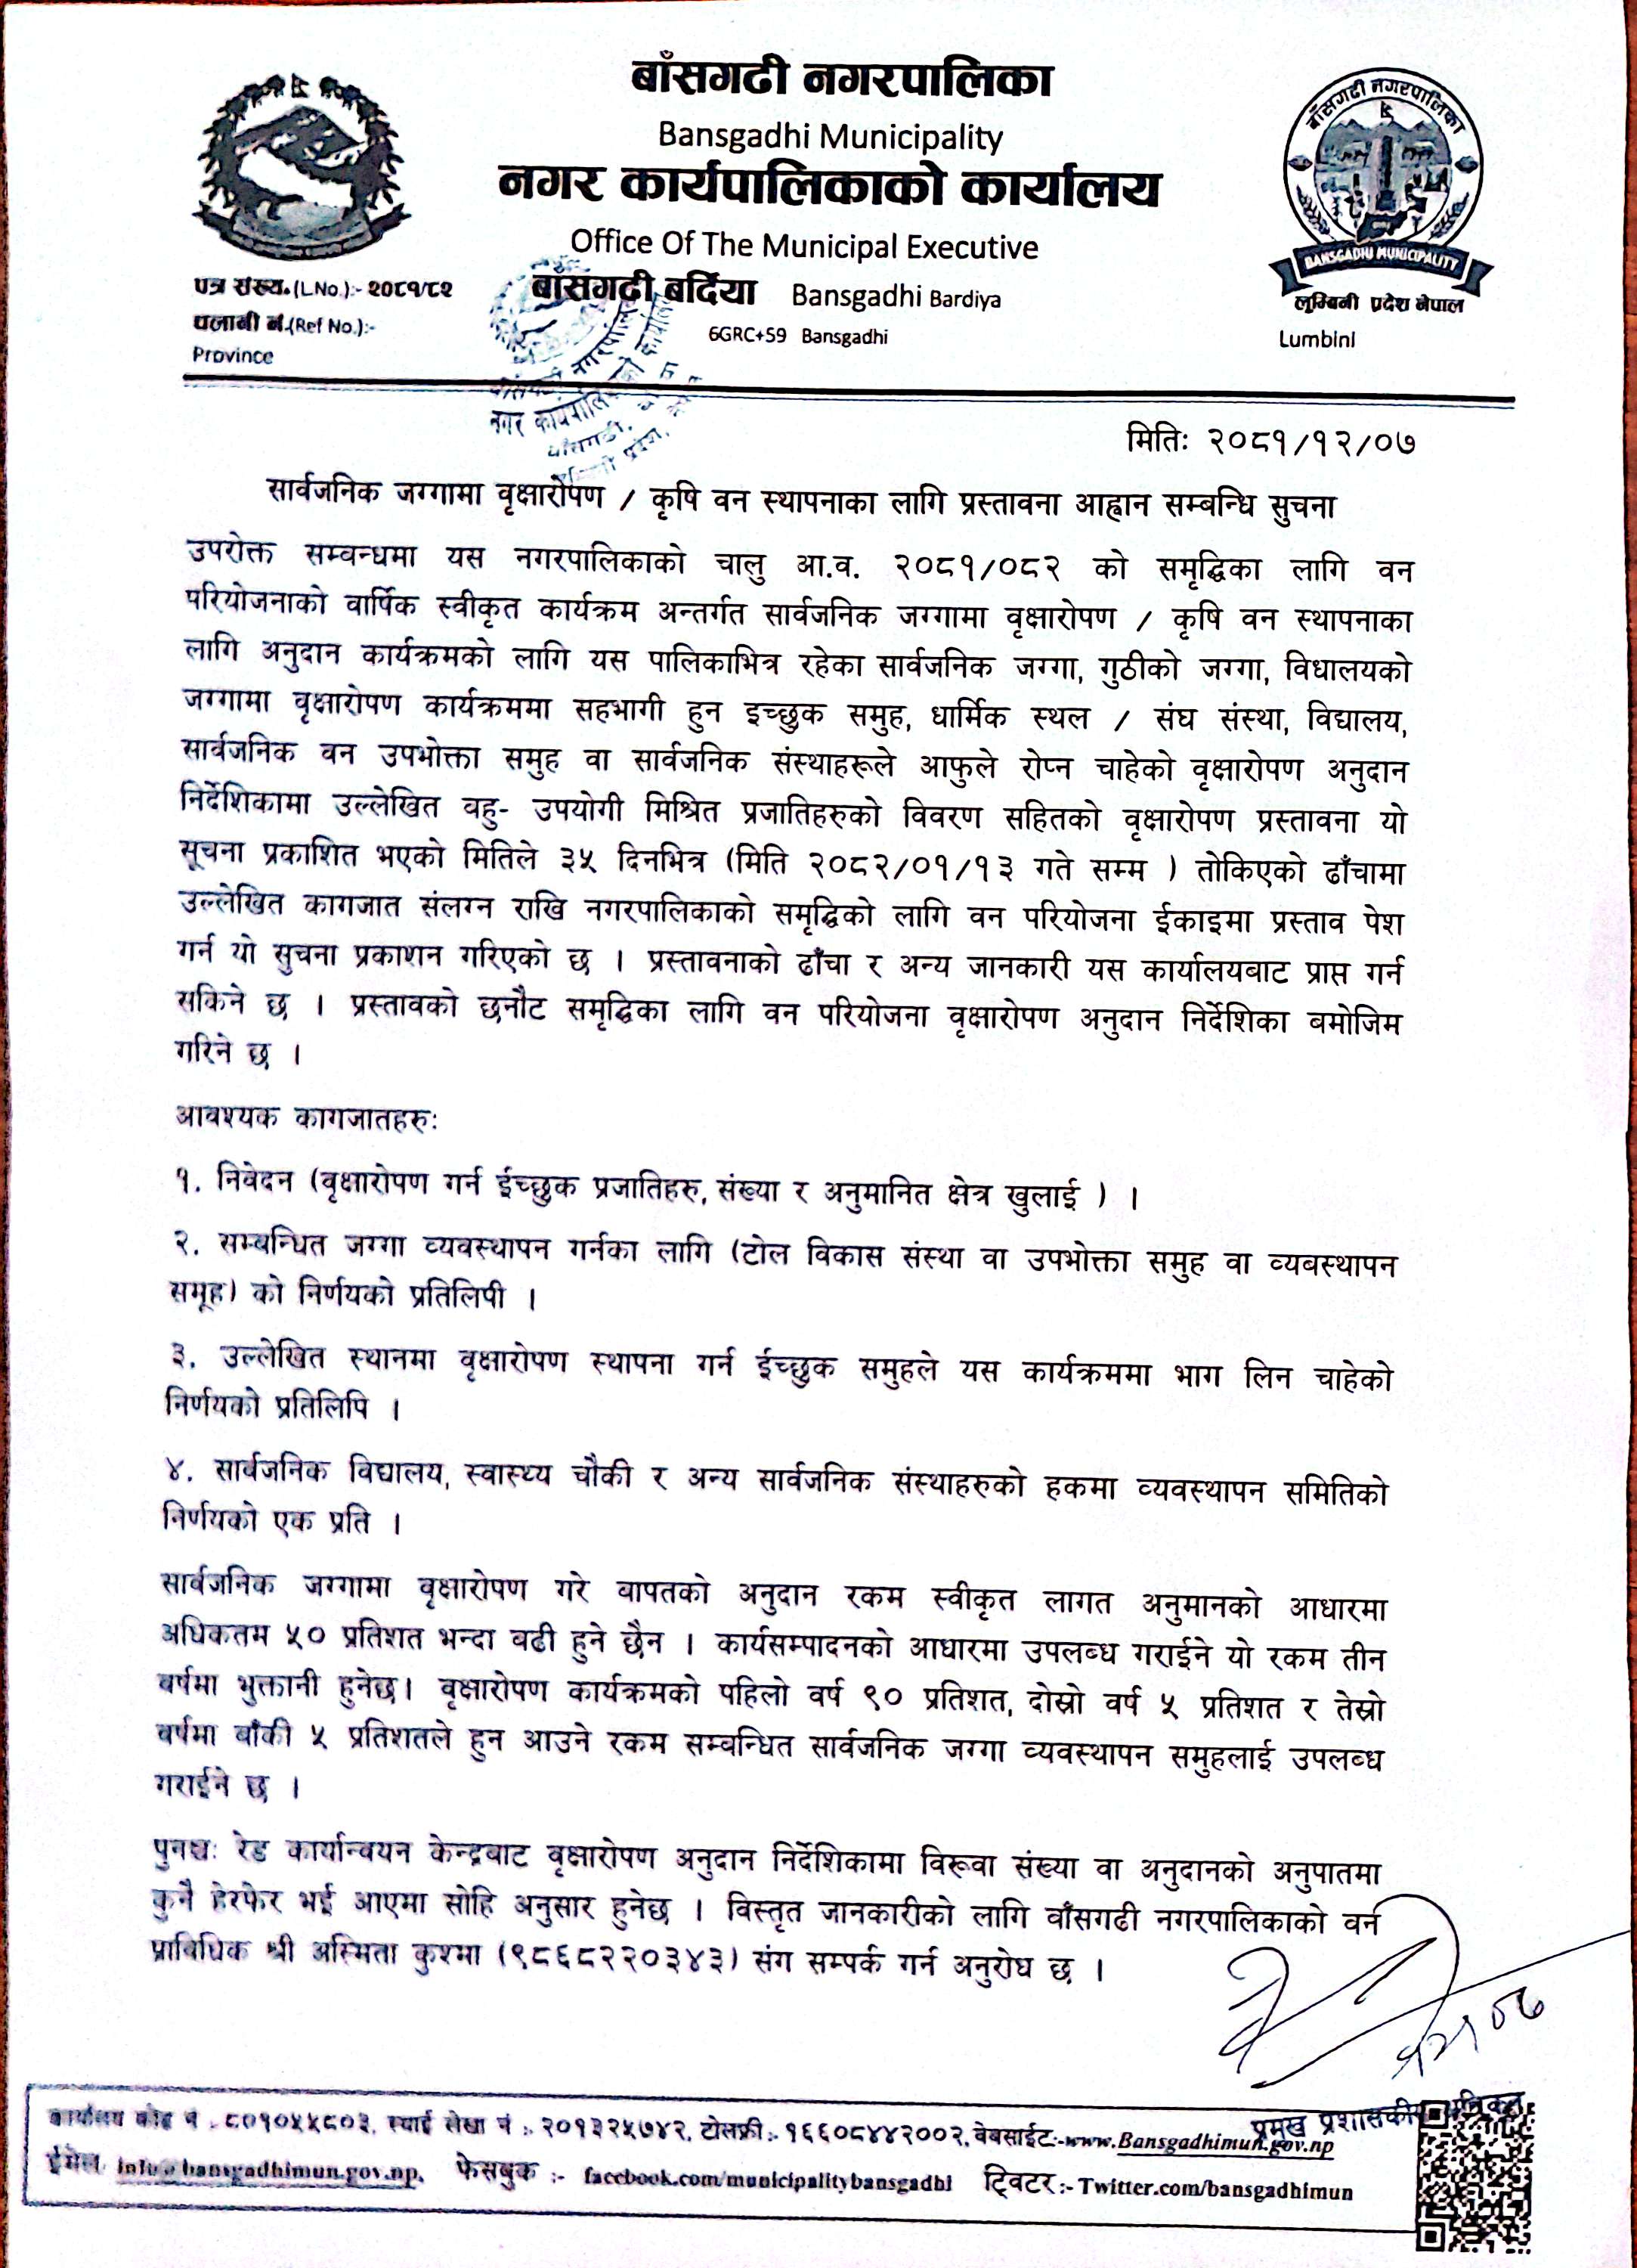 बाँसगढी नगरपालिका
Bansgadhi Municipality
नगर कार्यपालिकाको कार्यालय
Office Of The Municipal Executive
बाँसगढी बर्दिया Bansgadhi Bardiya
6GRC+59 Bansgadhi
पत्र संख्य.(L.No.):- २०८१/८२
चलानी नं.(Ref No.):-
Province
बाँसगढी नगरपालिका
BANSGADHI MUNICIPALITY
लुम्बिनी प्रदेश नेपाल
Lumbini
नगर कार्यपालिका
बाँसगढी,
मितिः २०८१/१२/०७
सार्वजनिक जग्गामा वृक्षारोपण / कृषि वन स्थापनाका लागि प्रस्तावना आह्वान सम्बन्धि सुचना
उपरोक्त सम्बन्धमा यस नगरपालिकाको चालु आ.व. २०८१/०८२ को समृद्धिका लागि वन
परियोजनाको वार्षिक स्वीकृत कार्यक्रम अन्तर्गत सार्वजनिक जग्गामा वृक्षारोपण / कृषि वन स्थापनाका
लागि अनुदान कार्यक्रमको लागि यस पालिकाभित्र रहेका सार्वजनिक जग्गा, गुठीको जग्गा, विधालयको
जग्गामा वृक्षारोपण कार्यक्रममा सहभागी हुन इच्छुक समुह, धार्मिक स्थल / संघ संस्था, विद्यालय,
सार्वजनिक वन उपभोक्ता समुह वा सार्वजनिक संस्थाहरूले आफुले रोप्न चाहेको वृक्षारोपण अनुदान
निर्देशिकामा उल्लेखित बहु- उपयोगी मिश्रित प्रजातिहरुको विवरण सहितको वृक्षारोपण प्रस्तावना यो
सूचना प्रकाशित भएको मितिले ३५ दिनभित्र (मिति २०८२/०१/१३ गते सम्म ) तोकिएको ढाँचामा
उल्लेखित कागजात संलग्न राखि नगरपालिकाको समृद्धिको लागि वन परियोजना ईकाइमा प्रस्ताव पेश
गर्न यो सुचना प्रकाशन गरिएको छ । प्रस्तावनाको ढाँचा र अन्य जानकारी यस कार्यालयबाट प्राप्त गर्न
सकिने छ । प्रस्तावको छनौट समृद्धिका लागि वन परियोजना वृक्षारोपण अनुदान निर्देशिका बमोजिम
गरिने छ ।
आवश्यक कागजातहरुः
१. निवेदन (वृक्षारोपण गर्न ईच्छुक प्रजातिहरु, संख्या र अनुमानित क्षेत्र खुलाई ) ।
२. सम्बन्धित जग्गा व्यवस्थापन गर्नका लागि (टोल विकास संस्था वा उपभोक्ता समुह वा व्यबस्थापन
समूह) को निर्णयको प्रतिलिपी ।
३. उल्लेखित स्थानमा वृक्षारोपण स्थापना गर्न ईच्छुक समुहले यस कार्यक्रममा भाग लिन चाहेको
निर्णयको प्रतिलिपि ।
४. सार्वजनिक विद्यालय, स्वास्थ्य चौकी र अन्य सार्वजनिक संस्थाहरुको हकमा व्यवस्थापन समितिको
निर्णयको एक प्रति ।
सार्वजनिक जग्गामा वृक्षारोपण गरे वापतको अनुदान रकम स्वीकृत लागत अनुमानको आधारमा
अधिकतम ५० प्रतिशत भन्दा बढी हुने छैन । कार्यसम्पादनको आधारमा उपलब्ध गराईने यो रकम तीन
बर्षमा भुक्तानी हुनेछ। वृक्षारोपण कार्यक्रमको पहिलो वर्ष ९० प्रतिशत, दोस्रो वर्ष ५ प्रतिशत र तेस्रो
बर्षमा बाँकी ५ प्रतिशतले हुन आउने रकम सम्बन्धित सार्वजनिक जग्गा व्यवस्थापन समुहलाई उपलब्ध
गराईने छ ।
पुनश्चः रेड कार्यान्वयन केन्द्रबाट वृक्षारोपण अनुदान निर्देशिकामा विरूवा संख्या वा अनुदानको अनुपातमा
कुनै हेरफेर भई आएमा सोहि अनुसार हुनेछ । विस्तृत जानकारीको लागि बाँसगढी नगरपालिकाको वन
प्राविधिक श्री अस्मिता कुश्मा (९८६८२२०३४३) संग सम्पर्क गर्न अनुरोध छ ।
प्रमुख प्रशासकीय
कार्यालय कोड नं :. ८०१०५५८०३, स्थाई लेखा नं :. २०१३२५७४२, टोलफ्री:. १६६०८४४२००२, वेबसाईट:-www.Bansgadhimun.gov.np
ईमेल info@bansgadhimun.gov.np, फेसबुक :- facebook.com/municipalitybansgadhi ट्विटर:- Twitter.com/bansgadhimun